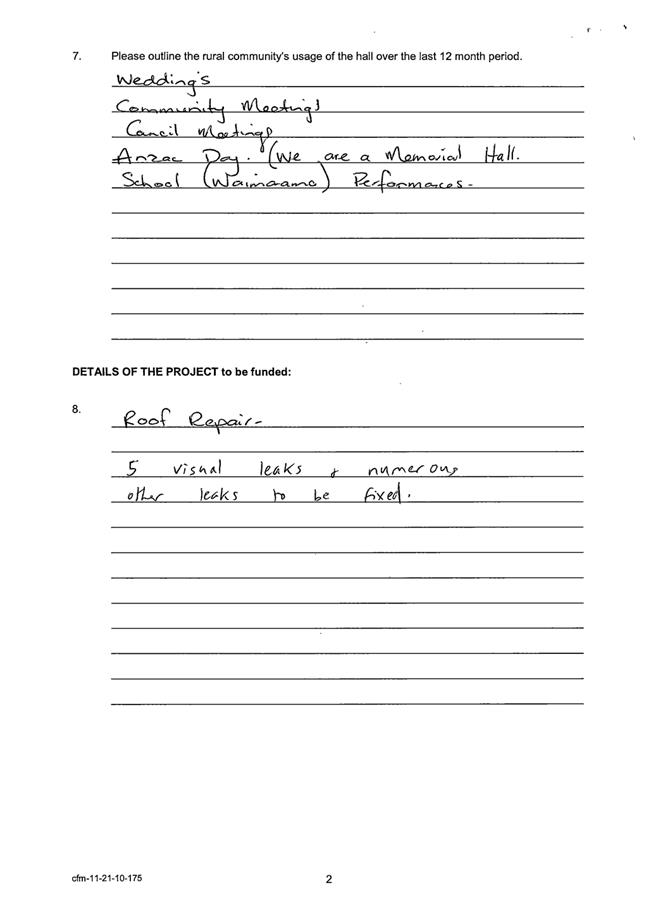 7. Please outline the rural community's usage of the hall over the last 12 month period.
Wedding's
Community Meetings
Cancil Meetings
Anzac Day. (We are a Memorial Hall.
School (Waimaama) Performaces-
DETAILS OF THE PROJECT to be funded:
8.
Roof Repair-
5 visual leaks & numerous
other leaks to be fixed.
cfm-11-21-10-175
2